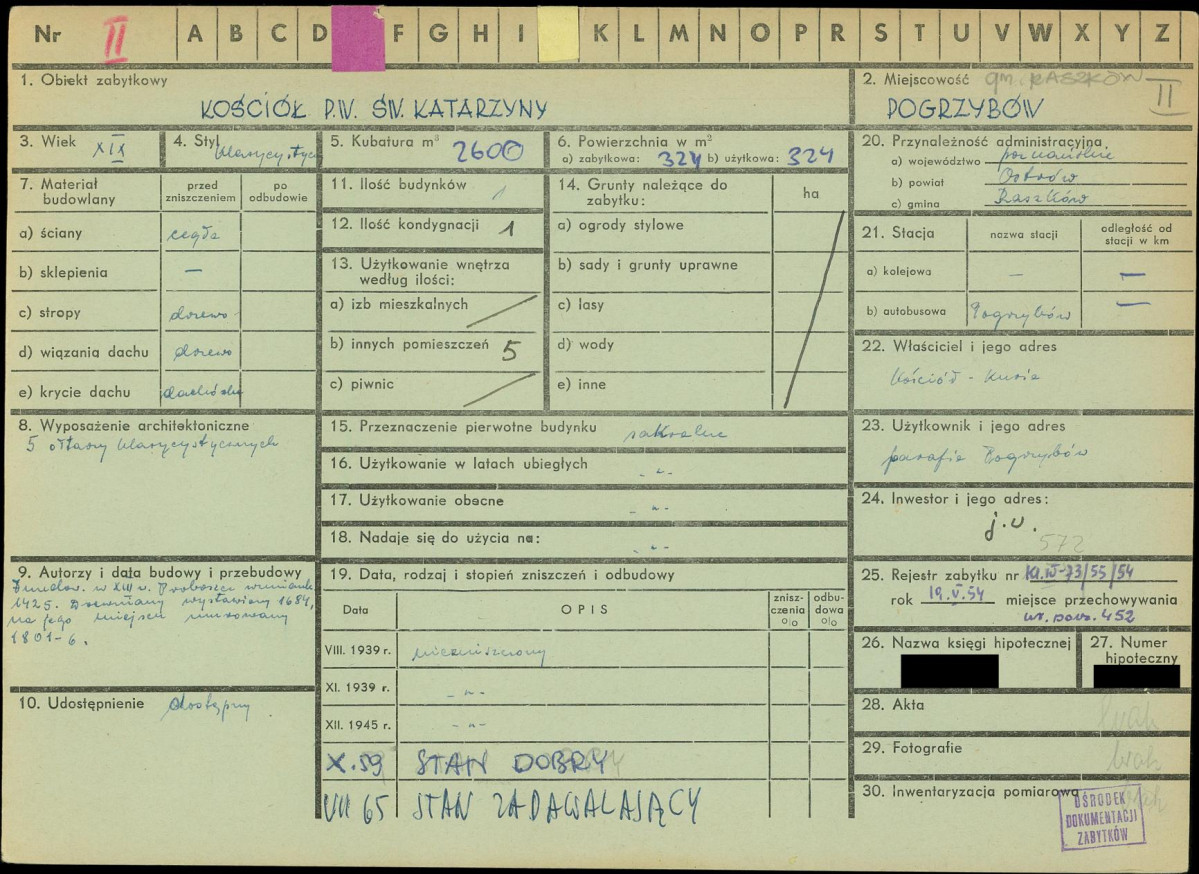 Nr II A B C D F G H I K L M N O P R S T U V W X Y Z
1. Obiekt zabytkowy
KOŚCIÓŁ P.W. ŚW. KATARZYNY
2. Miejscowość gm. RASZKÓW
POGRZYBÓW II
3. Wiek XIX
4. Styl klasycystycz
5. Kubatura m³ 2600
6. Powierzchnia w m²
a) zabytkowa: 324 b) użytkowa: 324
20. Przynależność administracyjna
a) województwo poznańskie
b) powiat Ostrów
c) gmina Raszków
7. Materiał budowlany
przed zniszczeniem
po odbudowie
a) ściany cegła
b) sklepienia —
c) stropy drewo
d) wiązania dachu drewo
e) krycie dachu dachówka
11. Ilość budynków 1
12. Ilość kondygnacji 1
13. Użytkowanie wnętrza
według ilości:
a) izb mieszkalnych
b) innych pomieszczeń 5
c) piwnic
14. Grunty należące do
zabytku:
ha
a) ogrody stylowe
b) sady i grunty uprawne
c) lasy
d) wody
e) inne
21. Stacja
nazwa stacji
odległość od
stacji w km
a) kolejowa — —
b) autobusowa Pogrzybów —
22. Właściciel i jego adres
Kościół - Kuria
8. Wyposażenie architektoniczne
5 ołtarzy klasycystycznych
15. Przeznaczenie pierwotne budynku sakralne
16. Użytkowanie w latach ubiegłych -"-
17. Użytkowanie obecne -"-
18. Nadaje się do użycia na: -"-
23. Użytkownik i jego adres
parafia Pogrzybów
24. Inwestor i jego adres:
j.w.
572
9. Autorzy i data budowy i przebudowy
w XIII w. Proboszcz wzmiank.
1425. Drewniany wystawiony 1684,
na jego miejscu murowany
1801-6.
10. Udostępnienie dostępny
19. Data, rodzaj i stopień zniszczeń i odbudowy
Data
OPIS
znisz-
czenia
%
odbu-
dowa
%
VIII. 1939 r. niezniszczony
XI. 1939 r. -"-
XII. 1945 r. -"-
X.59 STAN DOBRY
VII 65 STAN ZADAWALAJĄCY
25. Rejestr zabytku nr Kl.IV-73/55/54
rok 19.V.54 miejsce przechowywania
452
26. Nazwa księgi hipotecznej
27. Numer
hipoteczny
28. Akta brak
29. Fotografie brak
30. Inwentaryzacja pomiarowa brak
OŚRODEK
DOKUMENTACJI
ZABYTKÓW